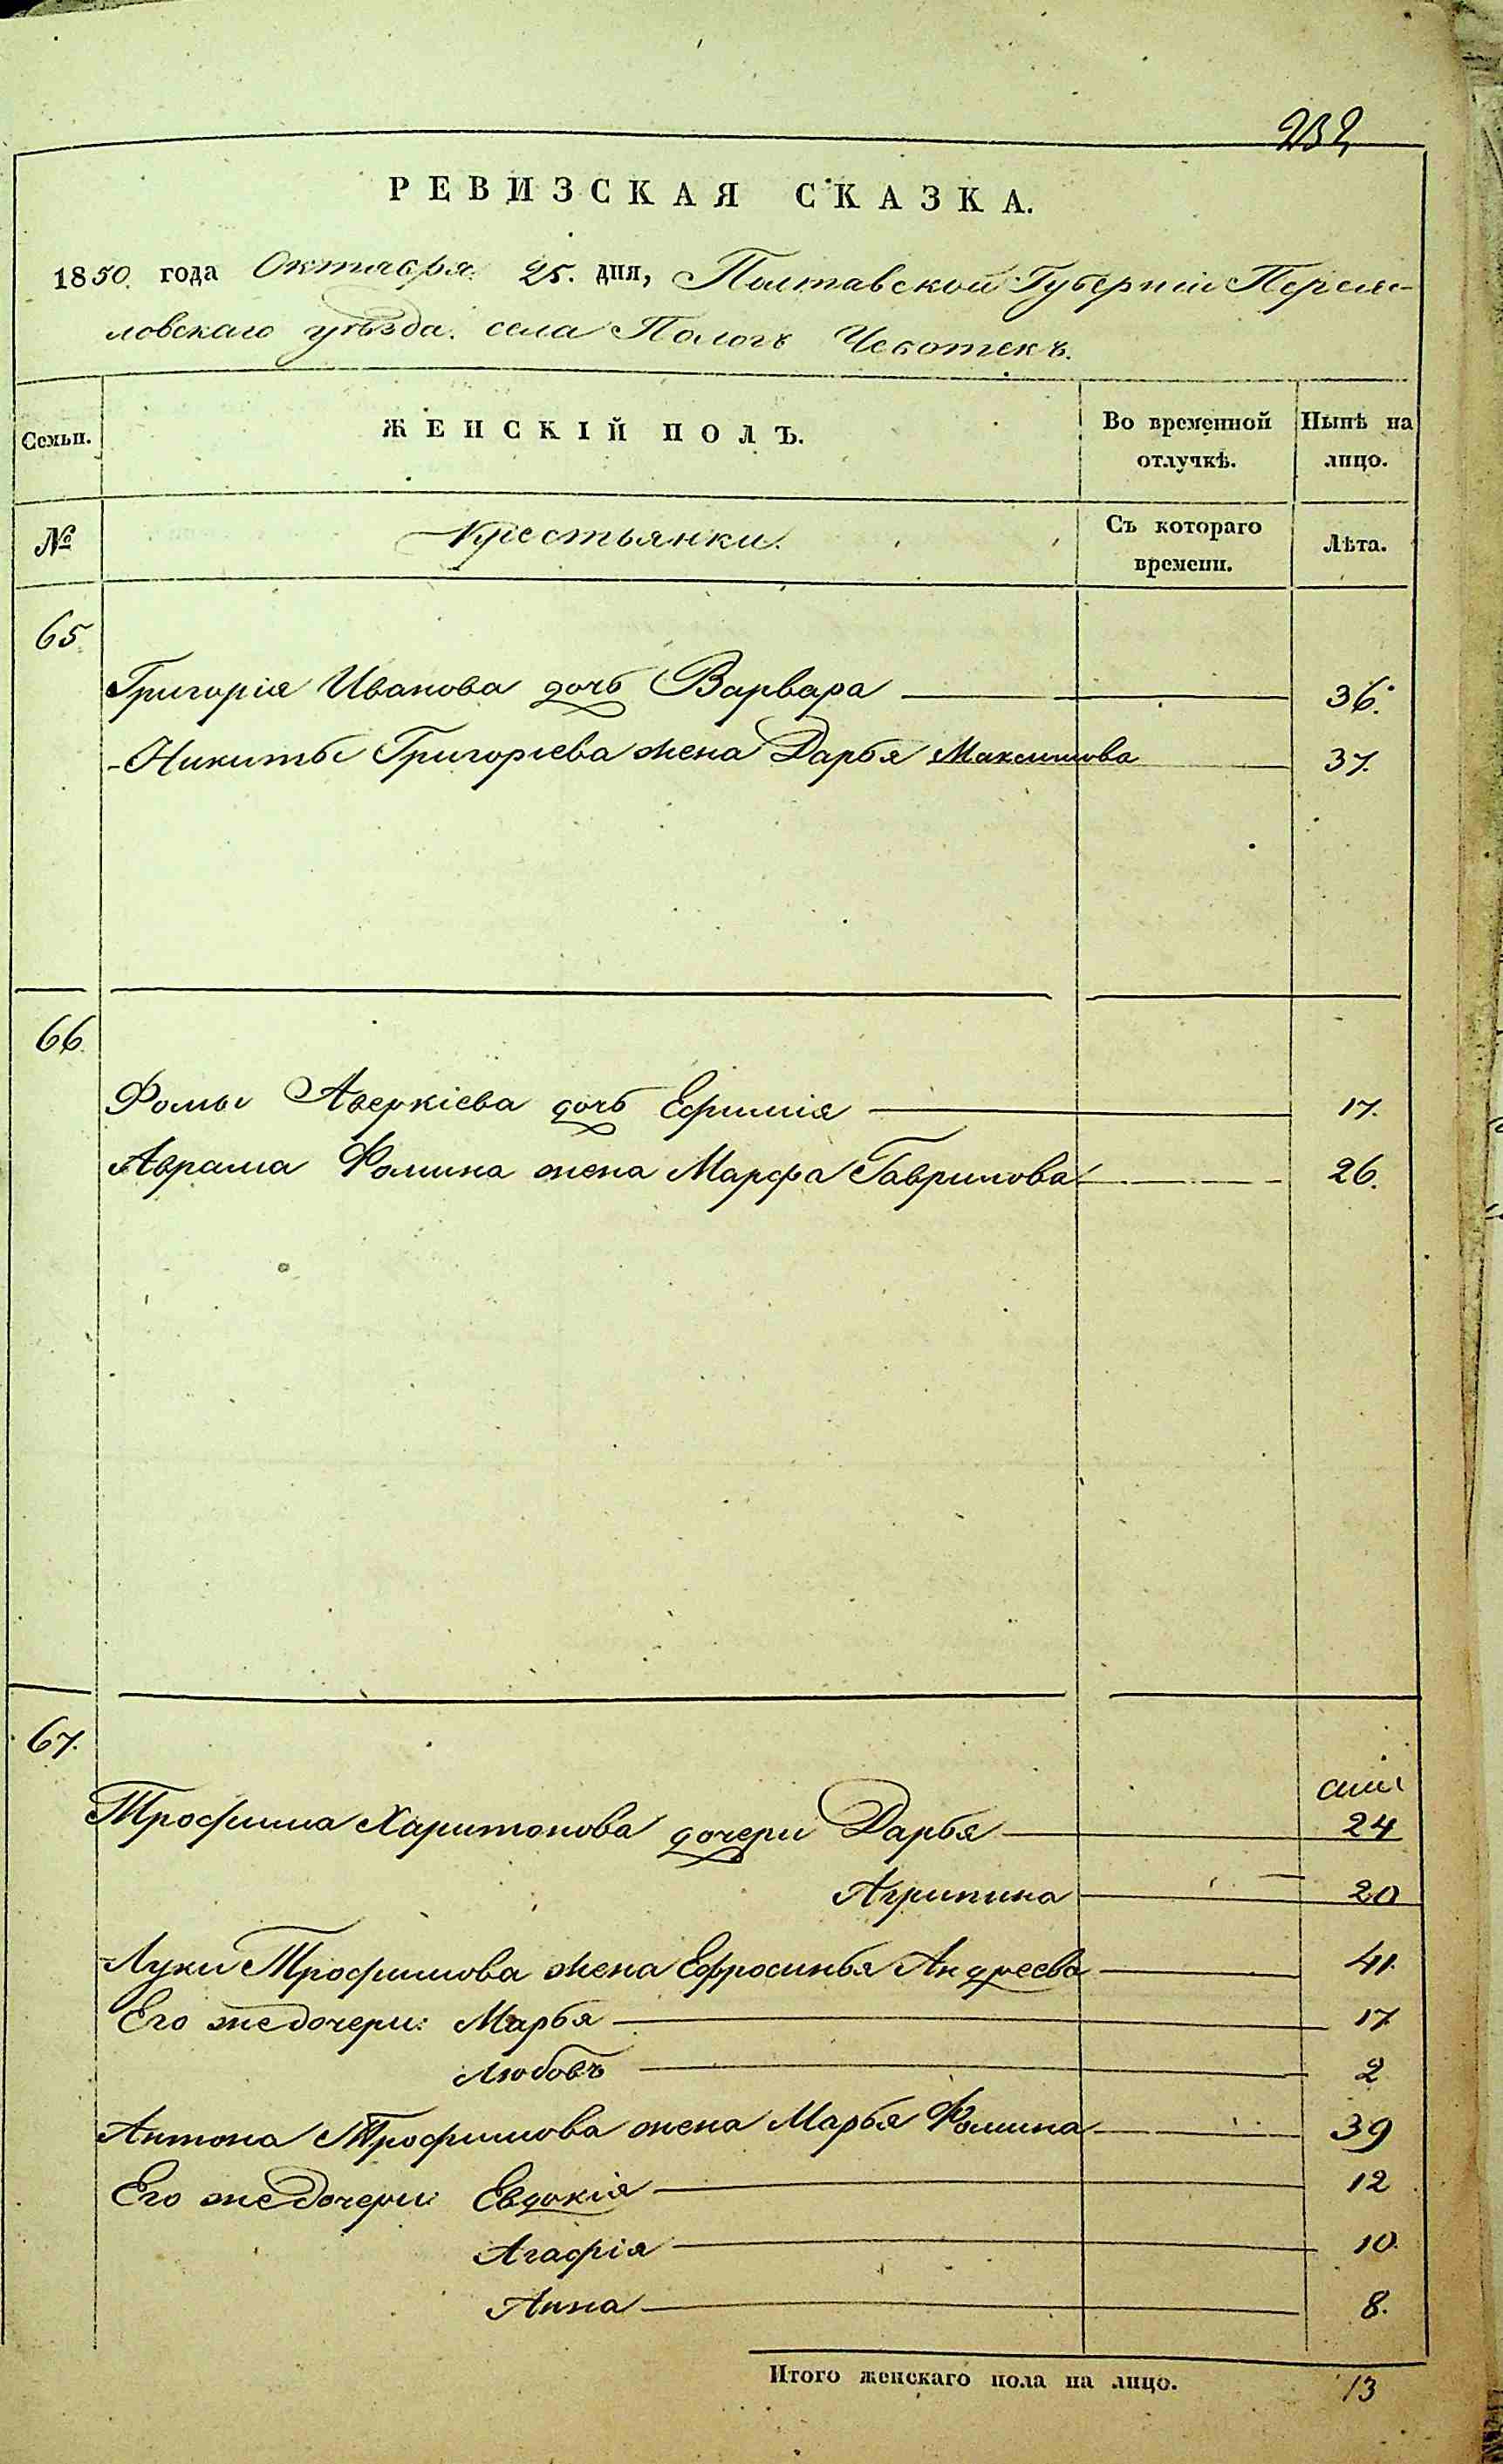 232
РЕВИЗСКАЯ СКАЗКА.
1850. года Октября 25. дня, Полтавской Губерніи Перея-
ловскаго уѣзда. села Пологъ Чеботекъ.
Семьи. ЖЕНСКІЙ ПОЛЪ. Во временной отлучкѣ. Нынѣ на лицо.
№ Крестьянки. Съ котораго времени. Лѣта.
65
Григорія Иванова дочь Варвара 36.
Никиты Григорьева жена Дарья Максимова 37.
66
Фомы Аверкіева дочь Ефимія 17.
Аврама Фомина жена Марфа Гаврилова 26.
67.
Трофима Харитонова дочери Дарья 24
Агрипина 20
Луки Трофимова жена Ефросинья Андреева 41.
Его же дочери: Марья 17
Любовъ 2
Антона Трофимова жена Марья Фомина 39
Его же дочери: Евдокія 12
Агафія 10.
Анна 8.
Итого женскаго пола на лицо. 13